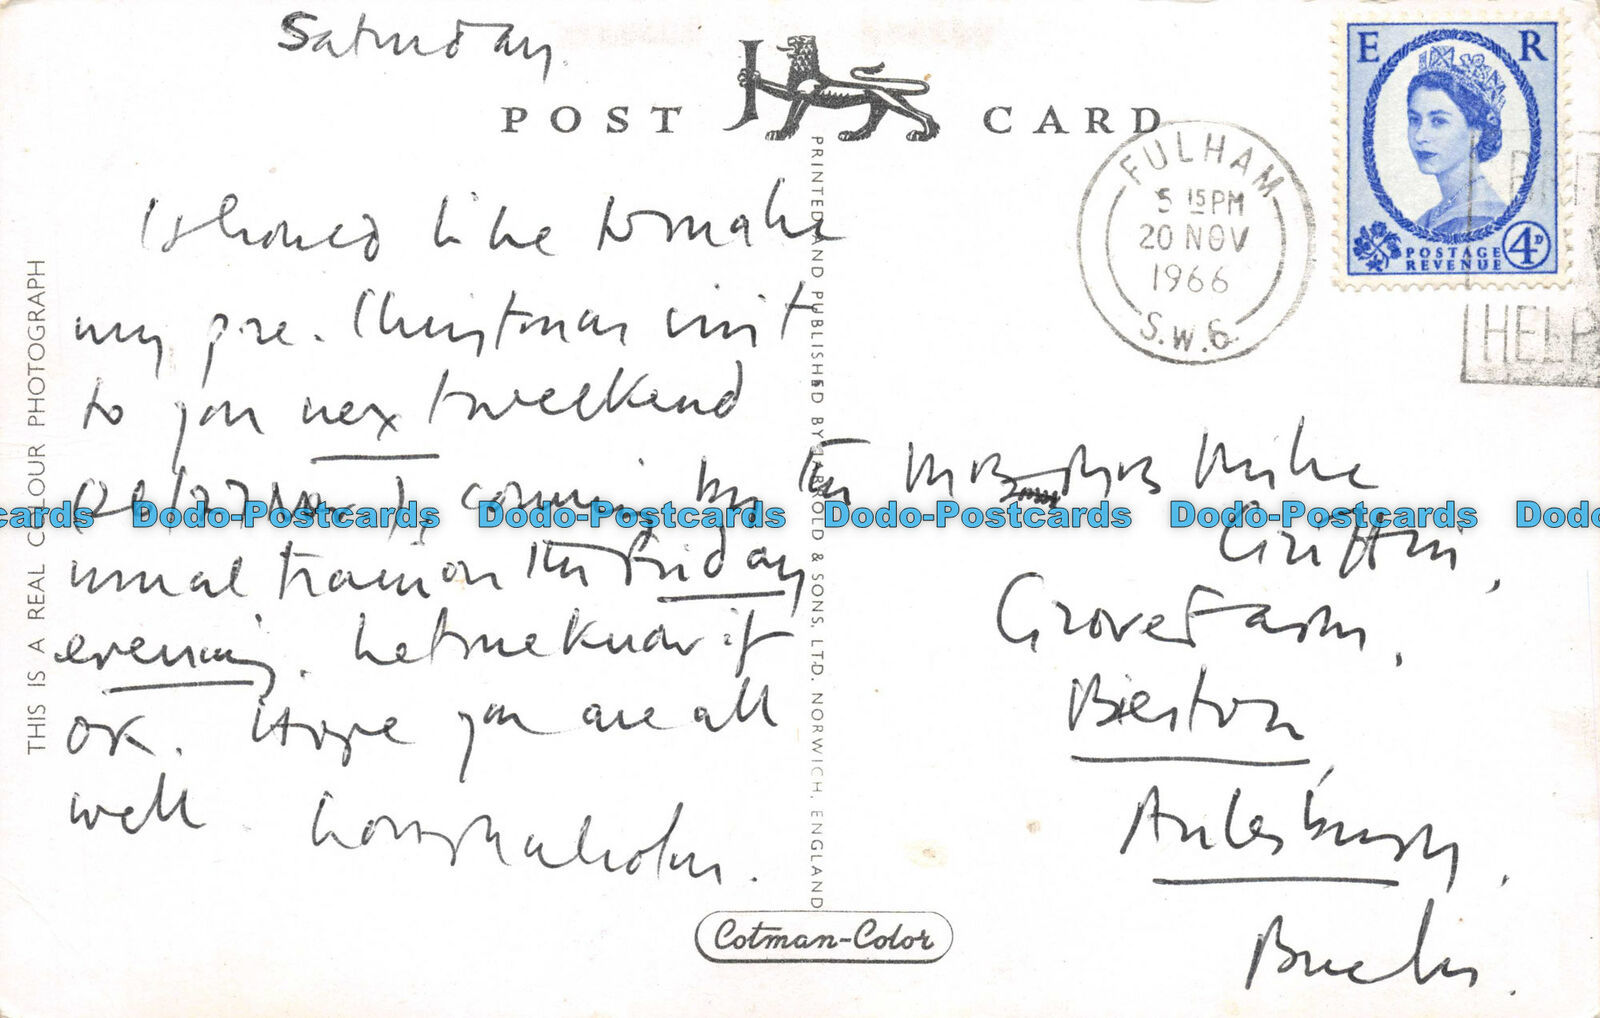 Saturday
POST CARD
I should like to make
my pre-Christmas visit
to you next weekend
(26/27 Nov), coming by the
usual train on the Friday
evening. Let me know if
OK. Hope you are all
well. Love, Malcolm.
THIS IS A REAL COLOUR PHOTOGRAPH
PRINTED AND PUBLISHED BY JARROLD & SONS, LTD. NORWICH, ENGLAND
Cotman-Color
E R
POSTAGE
REVENUE
4D
FULHAM
5 15 PM
20 NOV
1966
S.W.6.
HELP
Mike
Griffin,
Grove Farm,
Bierton,
Aylesbury,
Bucks.
cards Dodo-Postcards Dodo-Postcards Dodo-Postcards Dodo-Postcards Dodo